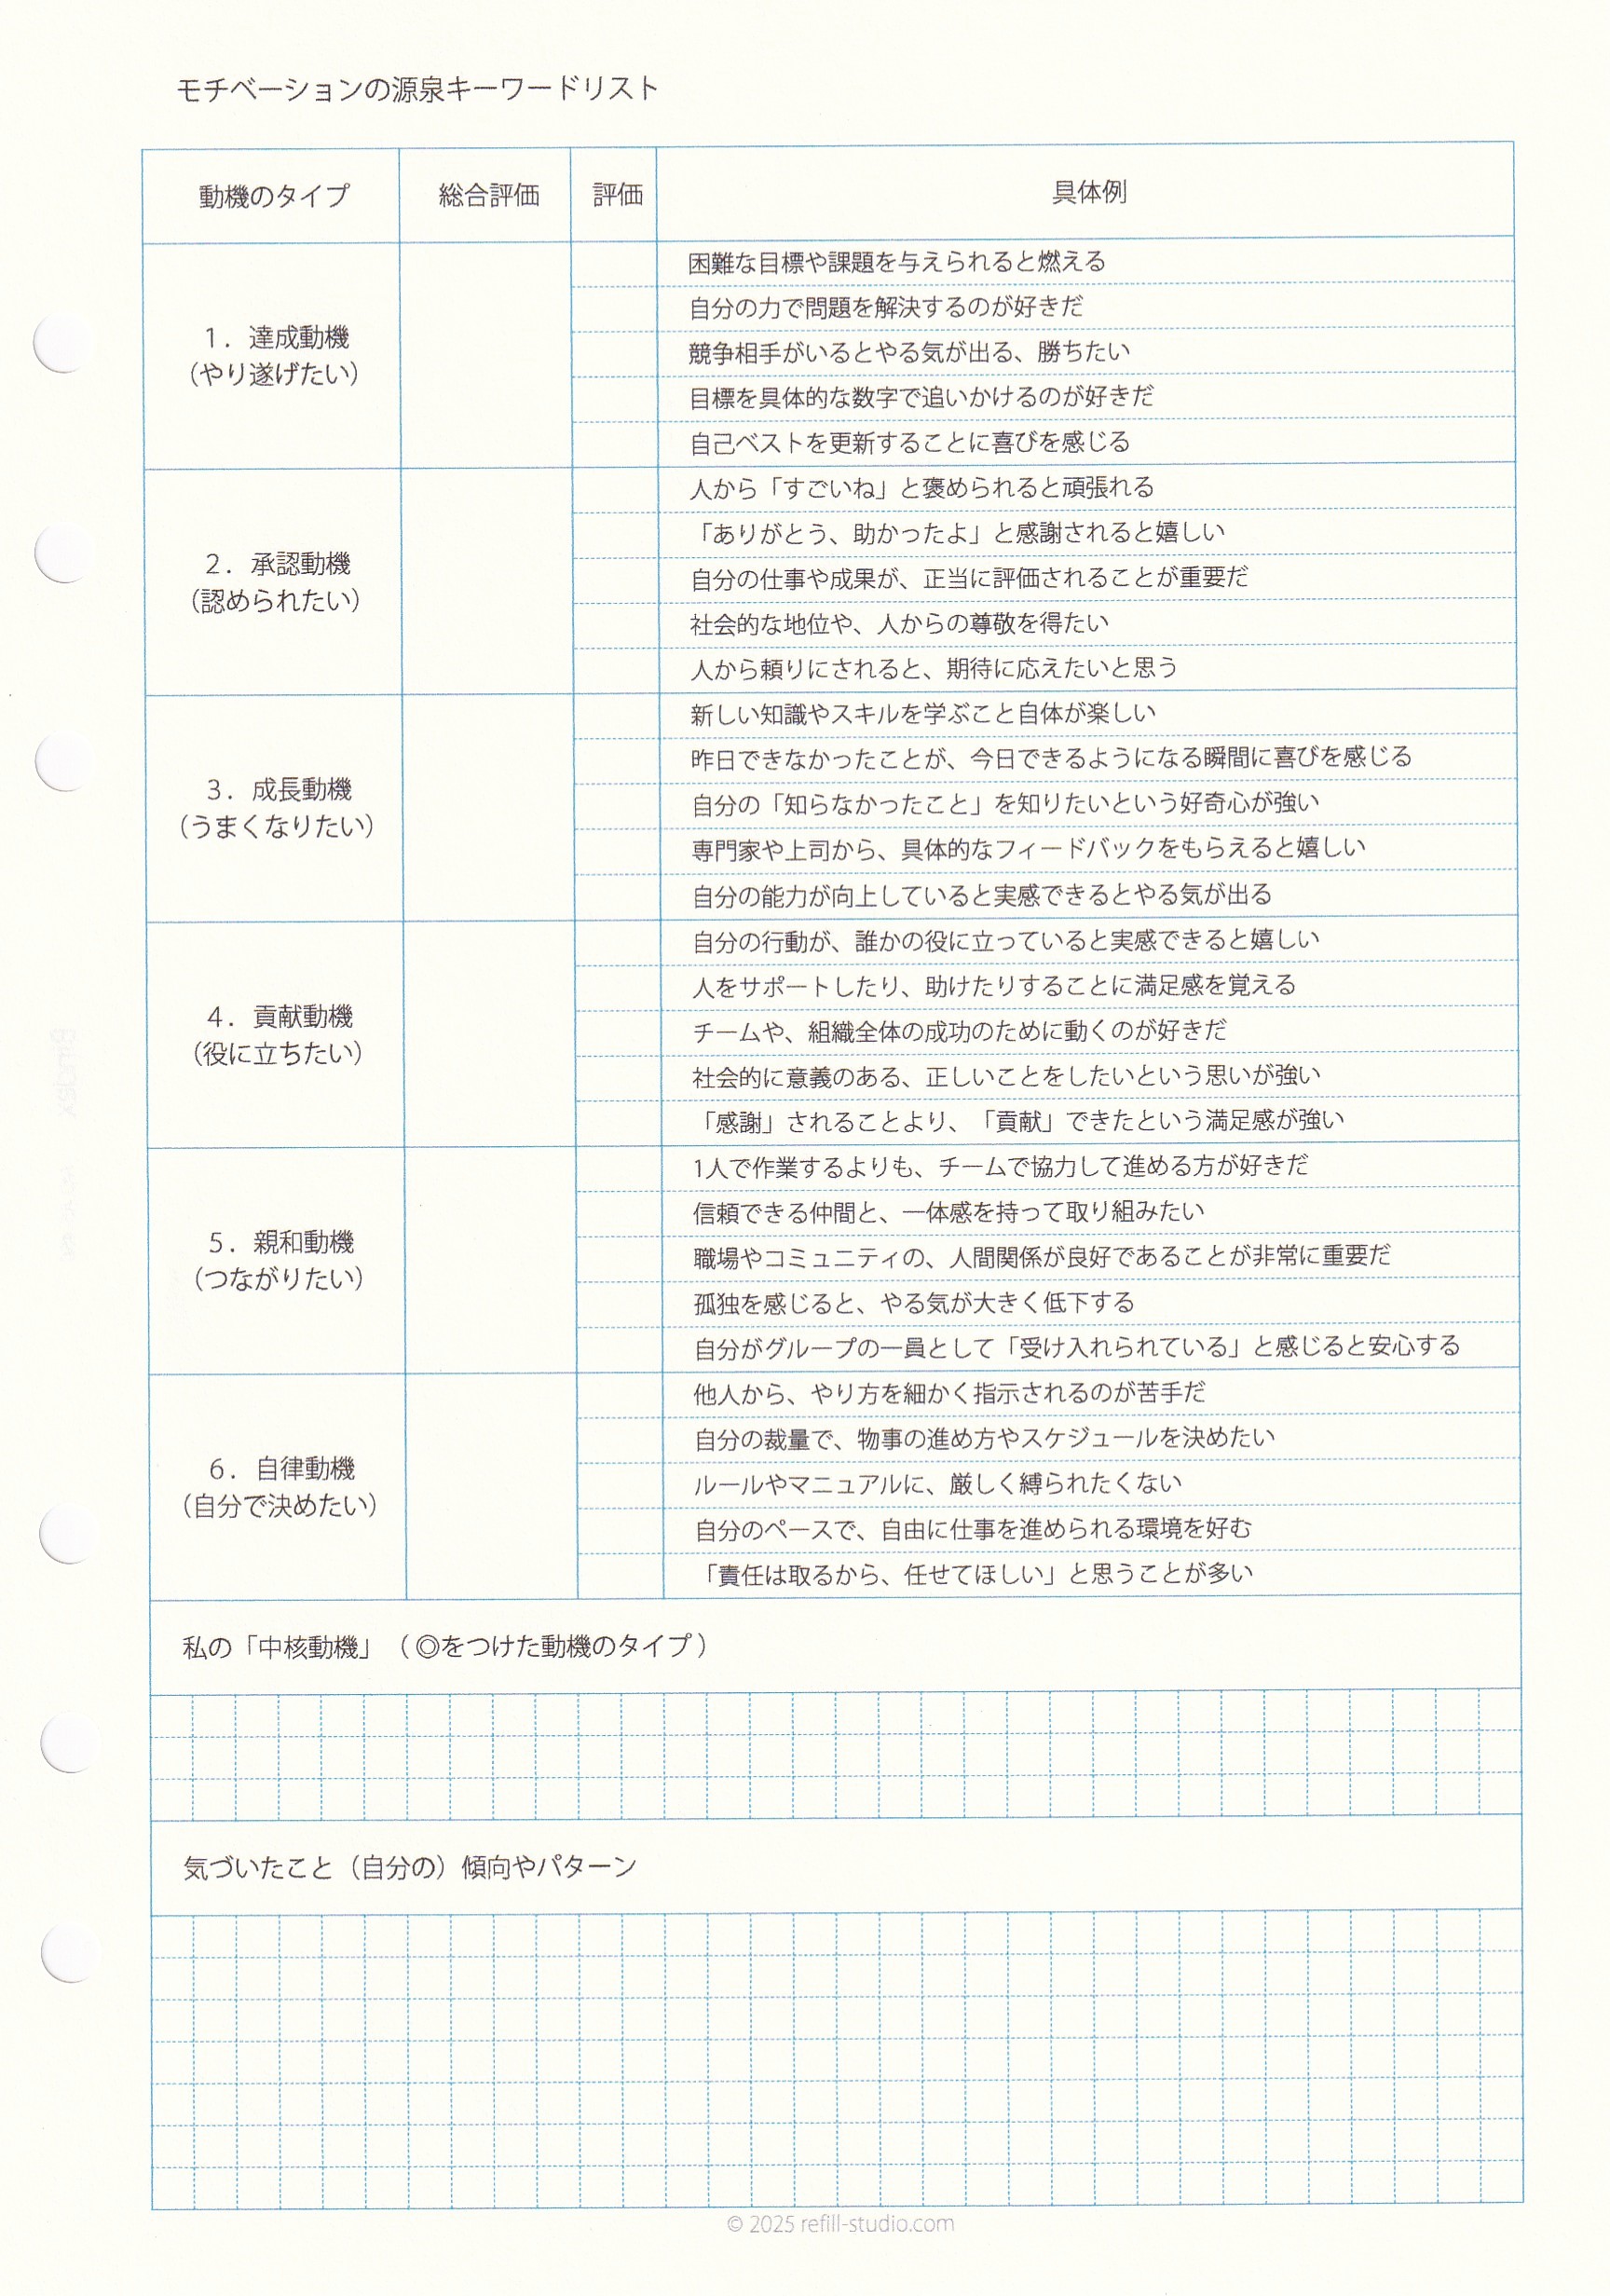 モチベーションの源泉キーワードリスト
動機のタイプ 総合評価 評価 具体例
1．達成動機
（やり遂げたい）
困難な目標や課題を与えられると燃える
自分の力で問題を解決するのが好きだ
競争相手がいるとやる気が出る、勝ちたい
目標を具体的な数字で追いかけるのが好きだ
自己ベストを更新することに喜びを感じる
2．承認動機
（認められたい）
人から「すごいね」と褒められると頑張れる
「ありがとう、助かったよ」と感謝されると嬉しい
自分の仕事や成果が、正当に評価されることが重要だ
社会的な地位や、人からの尊敬を得たい
人から頼りにされると、期待に応えたいと思う
3．成長動機
（うまくなりたい）
新しい知識やスキルを学ぶこと自体が楽しい
昨日できなかったことが、今日できるようになる瞬間に喜びを感じる
自分の「知らなかったこと」を知りたいという好奇心が強い
専門家や上司から、具体的なフィードバックをもらえると嬉しい
自分の能力が向上していると実感できるとやる気が出る
4．貢献動機
（役に立ちたい）
自分の行動が、誰かの役に立っていると実感できると嬉しい
人をサポートしたり、助けたりすることに満足感を覚える
チームや、組織全体の成功のために動くのが好きだ
社会的に意義のある、正しいことをしたいという思いが強い
「感謝」されることより、「貢献」できたという満足感が強い
5．親和動機
（つながりたい）
1人で作業するよりも、チームで協力して進める方が好きだ
信頼できる仲間と、一体感を持って取り組みたい
職場やコミュニティの、人間関係が良好であることが非常に重要だ
孤独を感じると、やる気が大きく低下する
自分がグループの一員として「受け入れられている」と感じると安心する
6．自律動機
（自分で決めたい）
他人から、やり方を細かく指示されるのが苦手だ
自分の裁量で、物事の進め方やスケジュールを決めたい
ルールやマニュアルに、厳しく縛られたくない
自分のペースで、自由に仕事を進められる環境を好む
「責任は取るから、任せてほしい」と思うことが多い
私の「中核動機」（◎をつけた動機のタイプ）
気づいたこと（自分の）傾向やパターン
© 2025 refill-studio.com